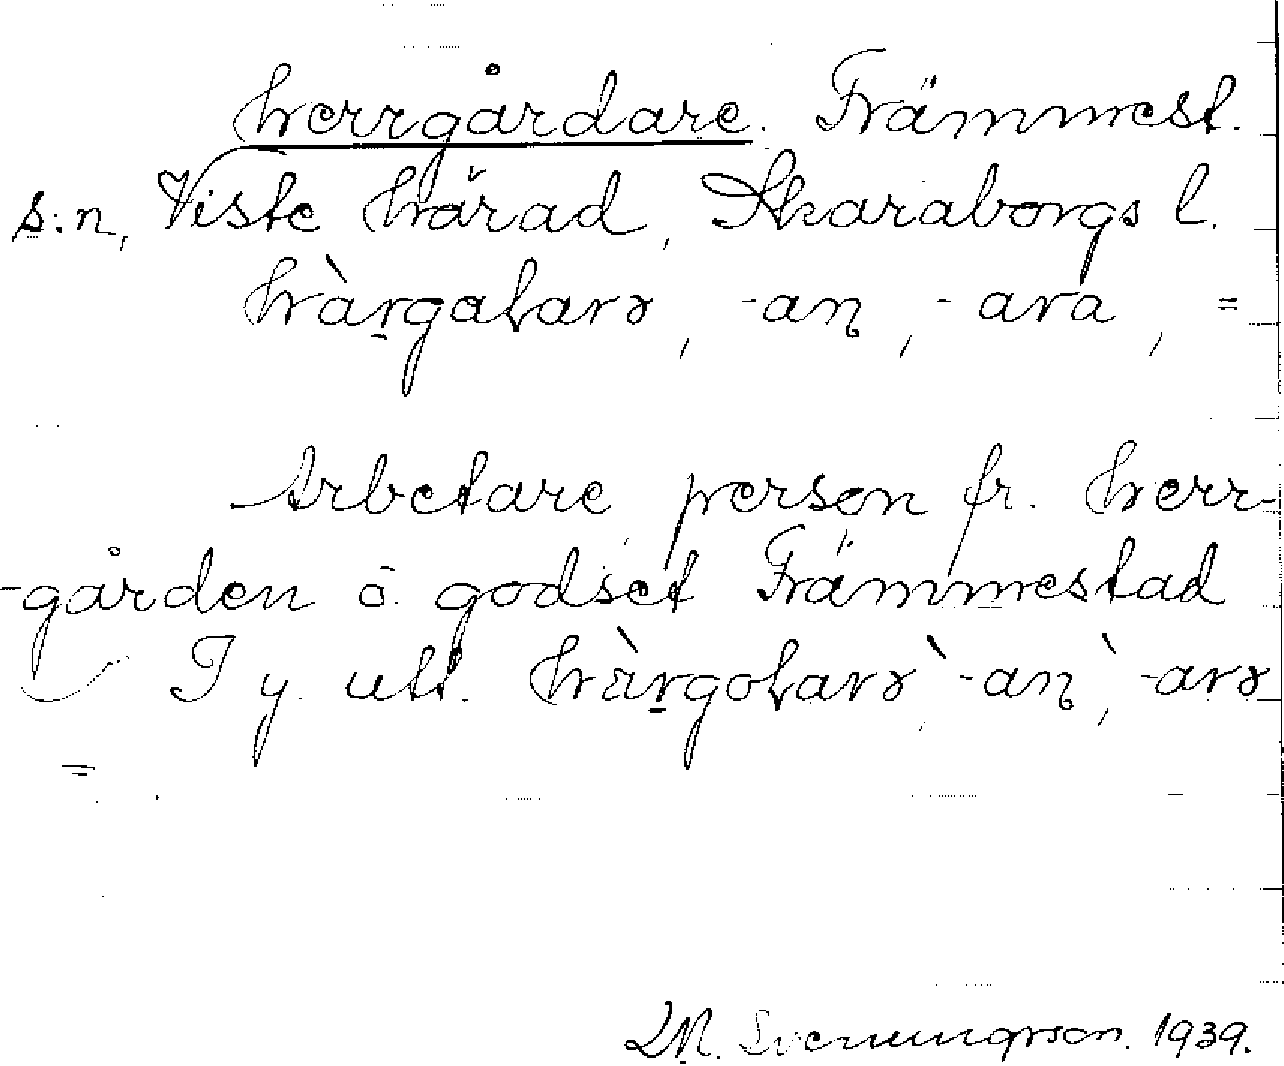 herrgårdare. Främmest.
s:n, Viste härad, Skaraborgs l.
hàrgaƚarə, -an, -ara, =
Arbetare, person fr. herr-
-gården o. godset Främmestad
I y. utt. hàrgoƚarə, -an, -arə
=
Svenungsson. 1939.